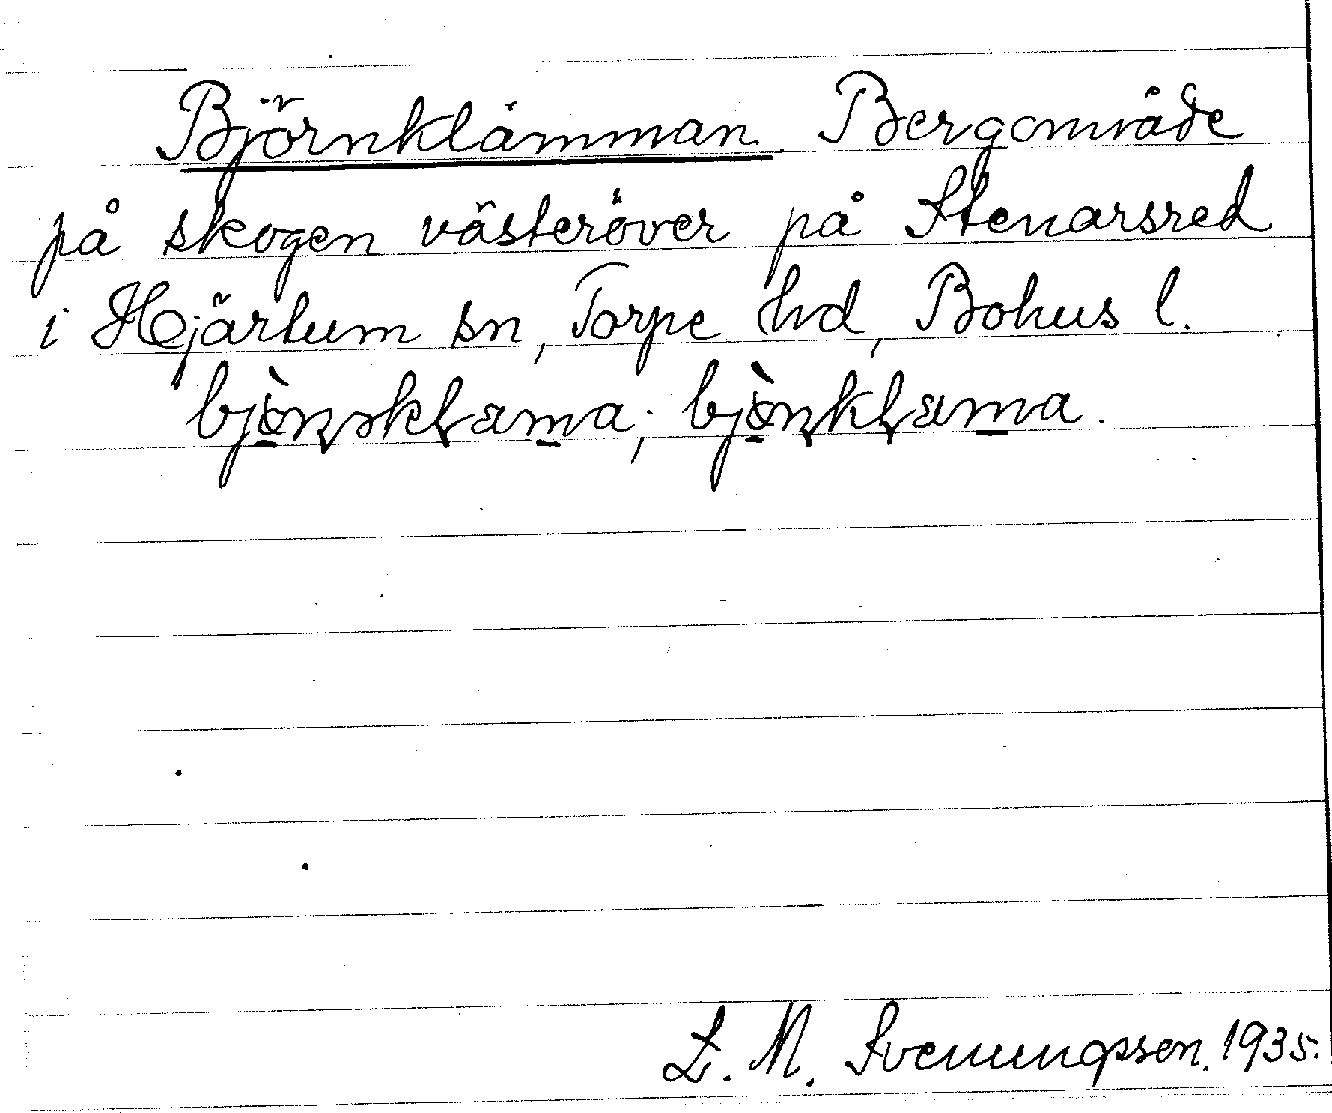 Björnklämman. Bergområde
på skogen västeröver på Stenarsred
i Hjärtum sn, Torpe hd, Bohus l.
bjònskḷama; bjònkḷama.
L. M. Svenungsson. 1935.